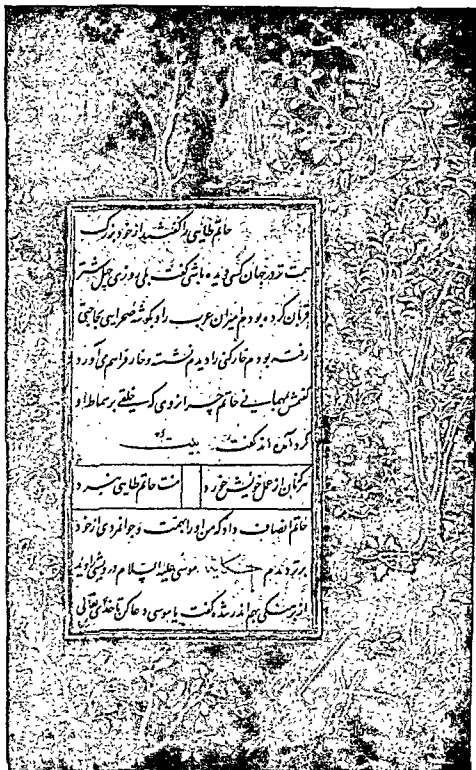 حاتم طایی را گفتند از خود بزرگ
همت تر در جهان کسی دیده باشی گفت بلی روزی چهل شتر
قربان کرده بودم امیران عرب را و بکوشهٔ صحرایی بحاجتی
رفته بودم خارکنی را دیدم پشته خار فراهم می آورد
کفتمش بمهمانی حاتم چرا نروی که خلقی بر سماط او
کرد آمده اند کفت بیت
هر که نان از عمل خویش خورد منت حاتم طایی نبرد
حاتم انصاف داد که من او را بهمت و جوانمردی از خود
برتر دیدم حکایت موسی علیه السلام درویشی را دید
از برهنگی بریک اندر شده کفت یا موسی دعا کن تا خدای تعالی